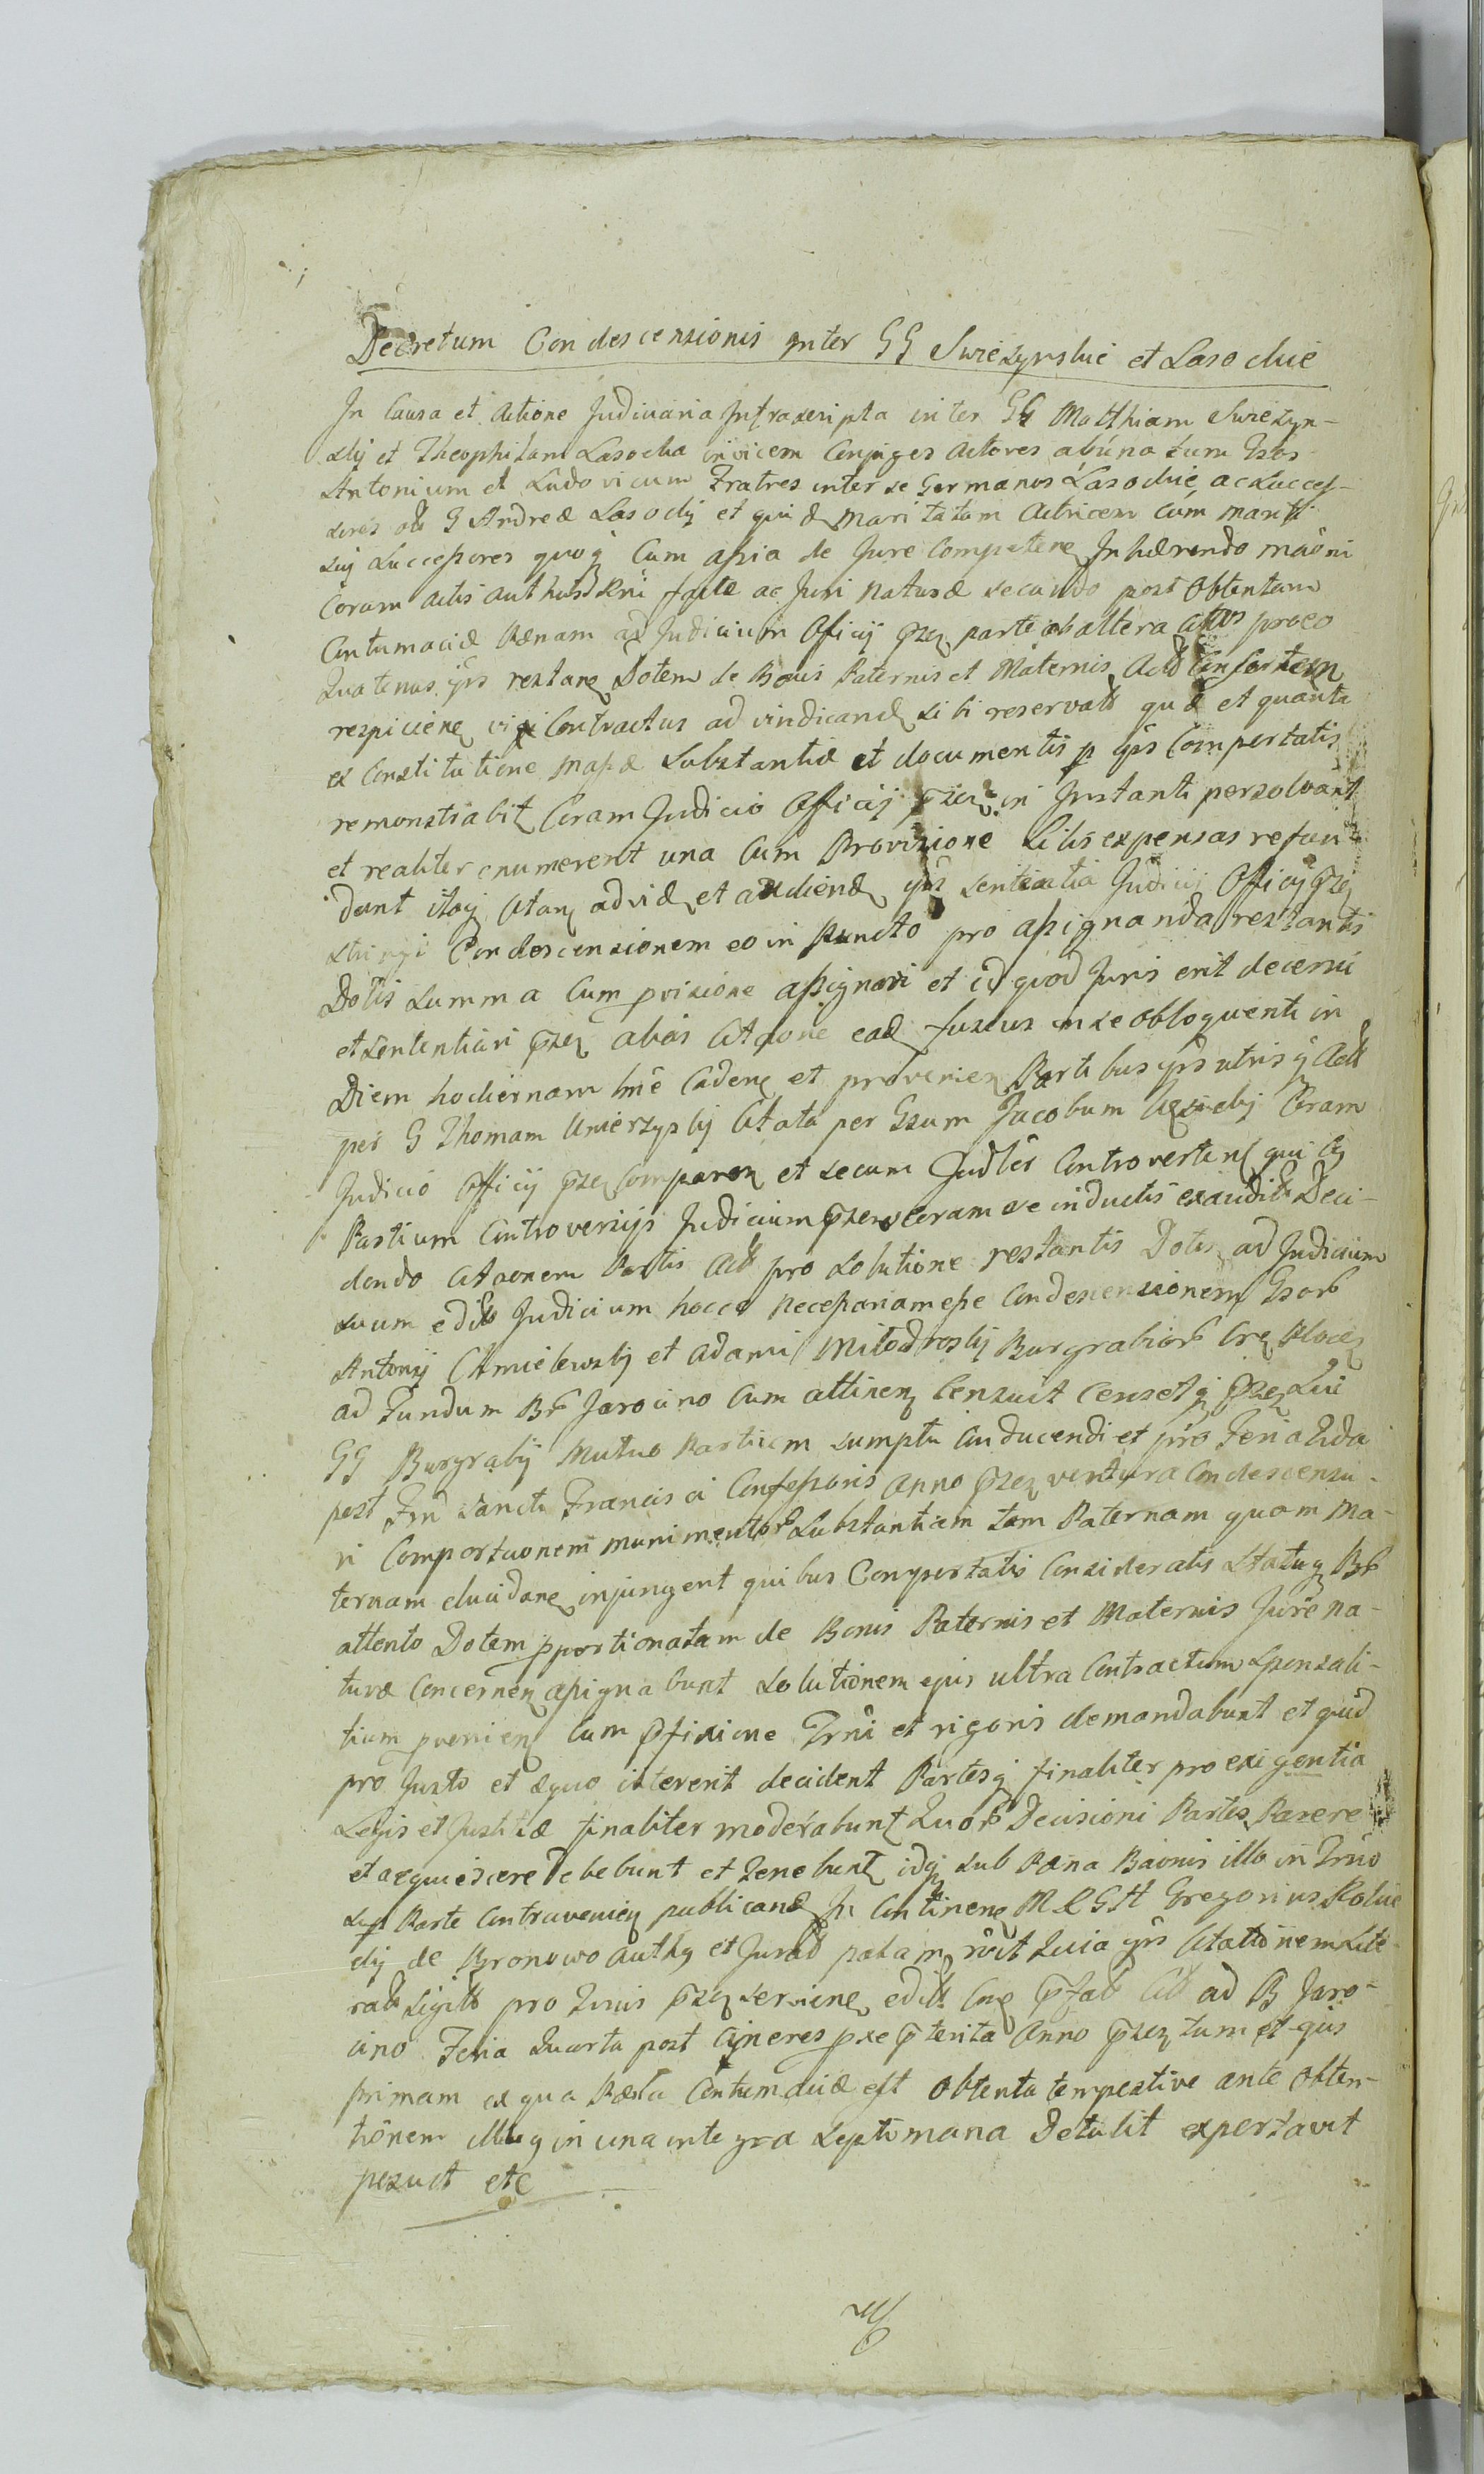 Decretum Condescensionis Inter GG Swiezynskie et Lasockie
In Causa et Actione Judiciaria Infrascripta inter GG Matthiam Swiezyn-
skij et Theophilam Lasocka invicem Conjuges Actores ab una tum Gsos
Antonium et Ludovicum Fratres inter se Germanos Lasockie, ac Succes-
sores olb G Andreæ Lasocky et qui & Maritatam Actricem Cum Marti
sui Successores quoq Cum assia de Jure Competene Inhærendo mãoni
Coram Actis Authus Rni factæ ac Juri Naturæ secundo post Obtentam
Contumaciæ Pænam ad Judicium Officij pzen parte ab altera Cttos proeo
Quatenus yrs restane Dotem de Bonis Paternis et Maternis Consortem
respiciene vigi Contractus ad vindicand sibi reservatt quæ et quanta
ex Constitutione Massæ Substantiæ et documentis p yrs Comportatis
remonstrabit Coram Judicio Officij pzen in Instanti persolvant
et realiter enumerent una Cum Provisione Litis expensas refun
dant itaq Citan advid et audiend yrs sententia Judicij Officij pzen
stringi Condescensionem eo in Puncto pro assignanda restantis
Dotis summa Cum pvisione assignari et id quod Juris erit decerni
et sententiari pzen alias Citaone ead fusius in se obloquenti in
Diem hodiernam hnc Cadene et provenien Partibus yrs utrisq Actt
per G Thomam Umierzysky Citata per Gsum Jacobum Coram
Judicio Officij pzen Comparen et secum Judler Controverten qui
Partium Controversijs Judicium pzens Coram se inductis exauditis Deci-
dendo Citaonem Partis Actt pro Solutione restantis Dotis ad Judicium
suum editt Judicium hocce necessariam esse Condescensionem Gsorb
Antonij Chmielewsky et Adami Milodrosky Burgrabiorb Cren Plocen
ad Fundum Brb Jarocino Cum attinen Censuit Censetq pzen Qui
GG Burgrabij Mutuo Partium sumptu Conducendi et pro Feria 2da
post Frn Sancti Francisci Confessoris Anno pzen ventura Condescensu-
ri Comportaonem munimentorb Substantiam tam Paternam quam Ma-
ternam elucidane injungent quibus Comportatis Consideratis Statuq Brb
attento Dotem pportionatam de Bonis Paternis et Maternis Jure na-
turæ Concernen assignabunt Solutionem ejus ultra Contractum Sponsali-
tium pvenien Cum pfixione Trni et rigoris demandabunt et quid
pro Justo et æquo isterent decident Partesq finaliter pro exigentia
Legis et Justitiæ finaliter moderabunt Quorb Decisioni Partes Parere
et acquiescere debebunt et tenebunt idq sub Pæna Baonis illo in Trno
sup Parte Contravenien publicand In Continene M R G H Gregorius Rolue
cky de Bronowo Authq et Jurad palam rcit Quia yrs Citationem Lite-
ratt Sigitt pro Trnis pzen serviene editt Cnq pfatt Citt ad B Jaro-
cino Feria Quarta post Cineres pxe pterita Anno pzen tum et ejus
primam ex qua Pæna Contumaciæ est Obtenta tempestive ante Obten-
tionem illiusq in una integra Septimana Detulit exportavit
posuit etc